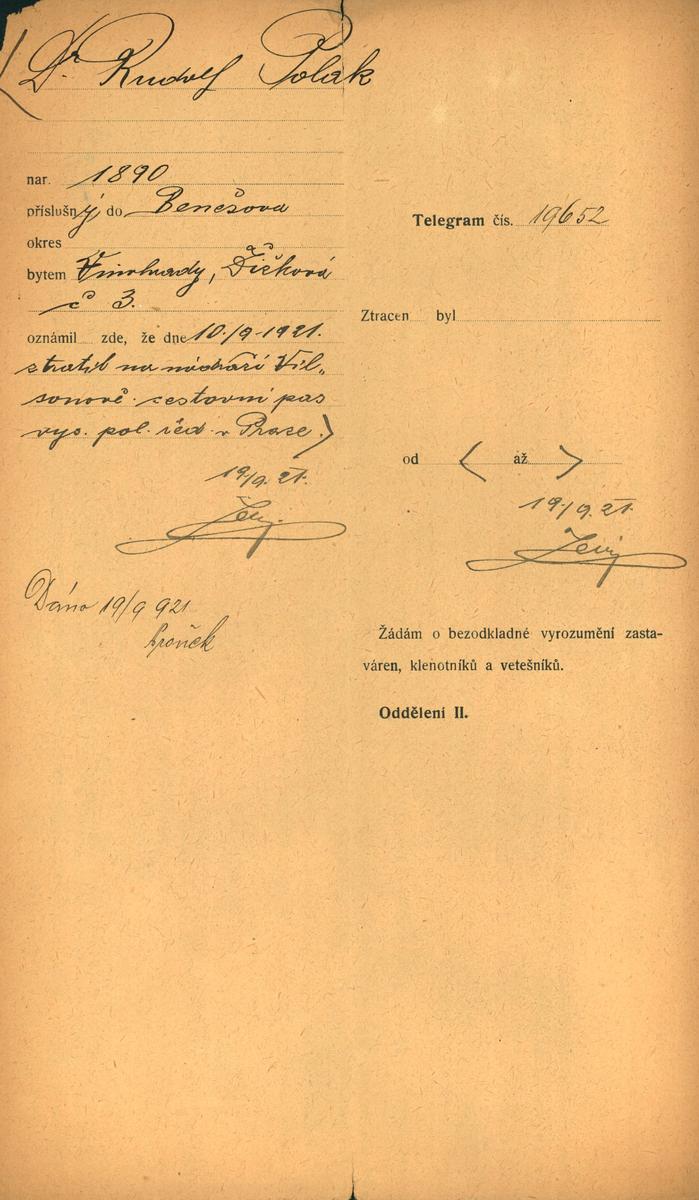 Dr Rudolf Polák
nar. 1890
příslušný do Benešova
okres
bytem Vinohrady,
č 3.
oznámil zde, že dne 10./9. 1921.
ztratil na nádraží Vil„
sonově cestovní pas
vys. pol. řed. v Praze.
19./9. 21.
Dáno 19/9 921
Telegram čís. 19652
Ztracen byl
od až
19./9. 21.
Žádám o bezodkladné vyrozumění zasta-
váren, klenotníků a vetešníků.
Oddělení II.